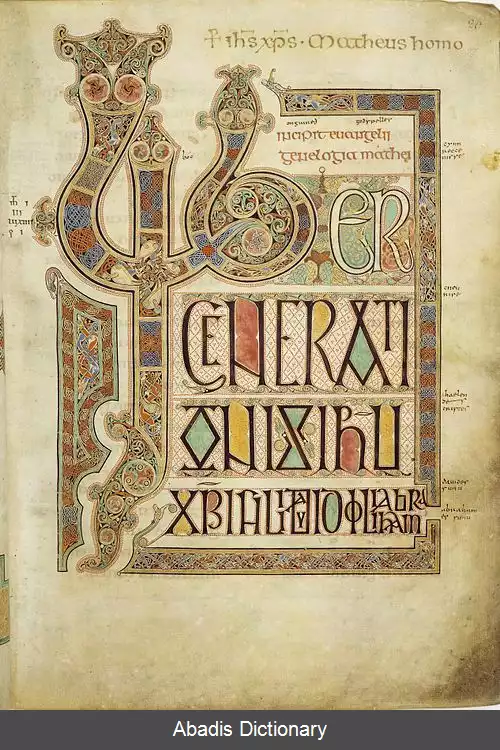 + ihs xps · Matheus homo
incipit euangelii
genelogia mathei
boc
LIBER
GENERATI
ONIS IHU
XPI FILII DAVID FILII ABRAHAM
Abadis Dictionary